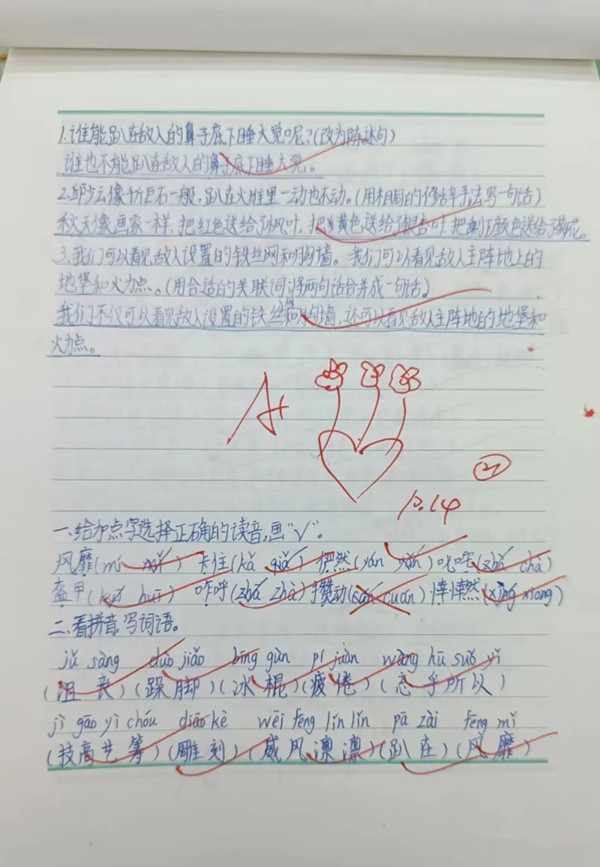 1.谁能趴在敌人的鼻子底下睡大觉呢?(改为陈述句)
谁也不能趴在敌人的鼻子底下睡大觉。
2.邱少云像千斤巨石一般,趴在火堆里一动也不动。(用相同的修辞手法写一句话)
秋天像画家一样,把红色送给枫叶,把黄色送给银杏叶,把送给菊花。
3.我们可以看见敌人设置的铁丝网和沟墙。我们可以看见敌人主阵地上的
地堡和火力点。(用合适的关联词将两句话合并成一句话。)
我们不仅可以看见敌人设置的铁丝网和沟墙,还可以看见敌人主阵地的地堡和
火力点。
A+
12.14
一.给加点字选择正确的读音,画"√"。
风靡(mí mǐ) 卡住(kǎ qiǎ) 俨然(yán yǎn) 咋(zhā chà)
盔甲(kuī huī) 咋呼(zhā zhà) 攒动(zǎn cuán) 悻悻然(xìng xìong)
二.看拼音,写词语。
jǔ sàng duò jiǎo bīng gùn pí juàn wàng hū suǒ yǐ
(沮丧)(跺脚)(冰棍)(疲倦)(忘乎所以)
jì gāo yì chóu diāo kè wēi fēng lǐn lǐn pā zài fēng mǐ
(技高艺筹)(雕刻)(威风凛凛)(趴在)(风靡)